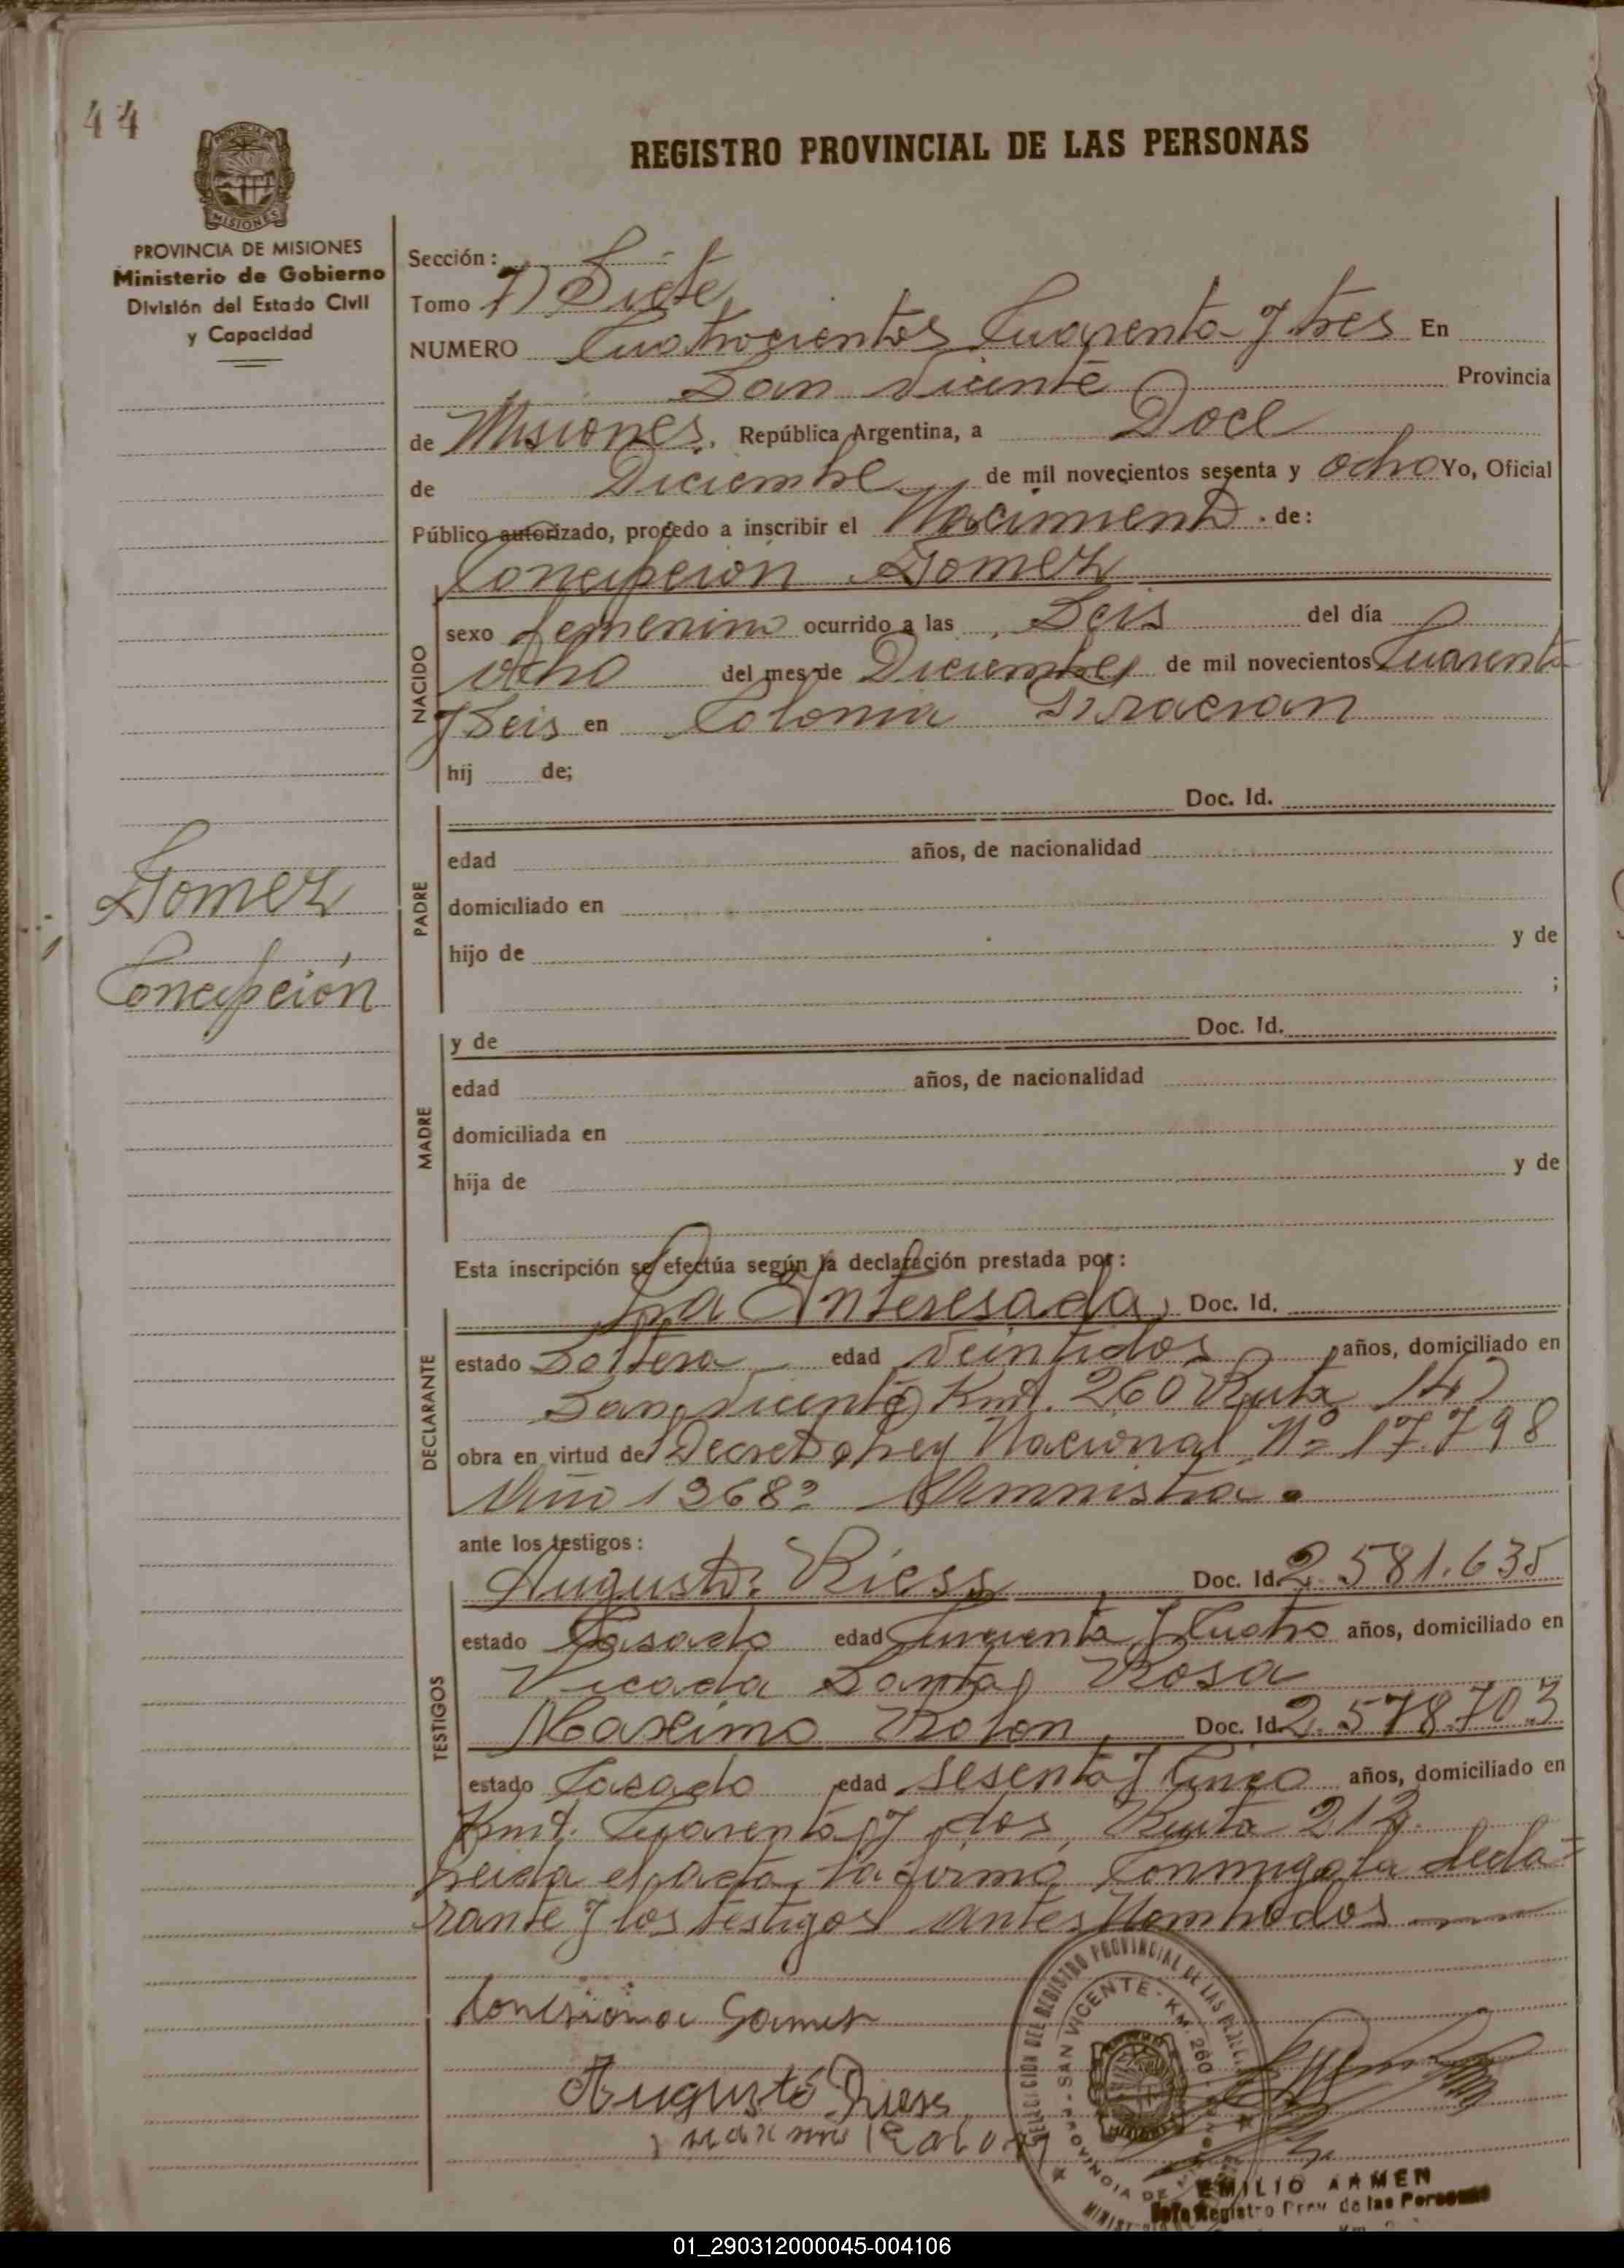 44
REGISTRO PROVINCIAL DE LAS PERSONAS
MISIONES
PROVINCIA DE MISIONES
Ministerio de Gobierno
División del Estado Civil
y Capacidad
Sección:
Tomo 7) Siete
NUMERO Cuatrocientos Cuarenta y tres En
San Vicente Provincia
de Misiones. República Argentina, a Doce
de Diciembre de mil novecientos sesenta y ocho Yo, Oficial
Público autorizado, procedo a inscribir el Nacimiento de:
Concepción Gomez
NACIDO
sexo femenino ocurrido a las Seis del día
ocho del mes de Diciembre de mil novecientos Cuarenta
y Seis en Colonia
hij de;
PADRE
Doc. Id.
edad años, de nacionalidad
domiciliado en
hijo de y de
;
Gomez
Concepción
MADRE
y de Doc. Id.
edad años, de nacionalidad
domiciliada en
hija de y de
Esta inscripción se efectúa según la declaración prestada por:
DECLARANTE
La Interesada, Doc. Id.
estado Soltera edad Veintidos años, domiciliado en
San Vicente Kmt. 260 Ruta 14
obra en virtud de Decreto Ley Nacional Nº 17.798
Año 1968 Amnistia.
ante los testigos:
TESTIGOS
Augusto Riess Doc. Id. 2.581.635
estado Casado edad y Cuatro años, domiciliado en
Picada Santa Rosa
Maximo Rolon, Doc. Id. 2.578.703
estado Casado edad sesenta y Cinco años, domiciliado en
Kmt. Cuarenta y dos, Ruta 212.
Leida el acta, la firma Conmigo la decla=
rante y los testigos antes Nombrados
Gomes
Augusto Riess
maximo Rolon
DELEGACION DEL REGISTRO PROVINCIAL DE LAS
SAN VICENTE - KM. 260
PROVINCIA DE
EMILIO ARMEN
Jefe Registro Prov. de las Personas
01_290312000045-004106